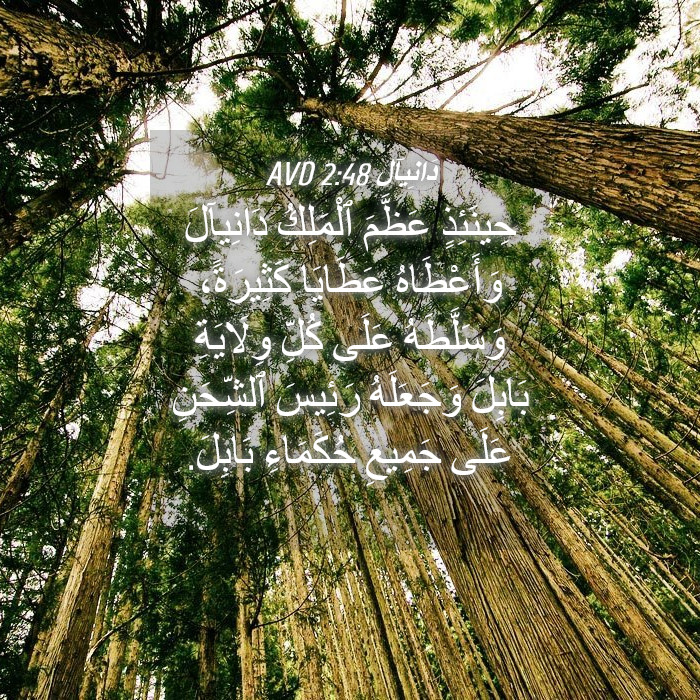 دانيآل 2:48 AVD
حِينَئِذٍ عَظَّمَ ٱلْمَلِكُ دَانِيآلَ
وَأَعْطَاهُ عَطَايَا كَثِيرَةً،
وَسَلَّطَهُ عَلَى كُلِّ وِلَايَةِ
بَابِلَ وَجَعَلَهُ رَئِيسَ ٱلشِّحَنِ
عَلَى جَمِيعِ حُكَمَاءِ بَابِلَ.